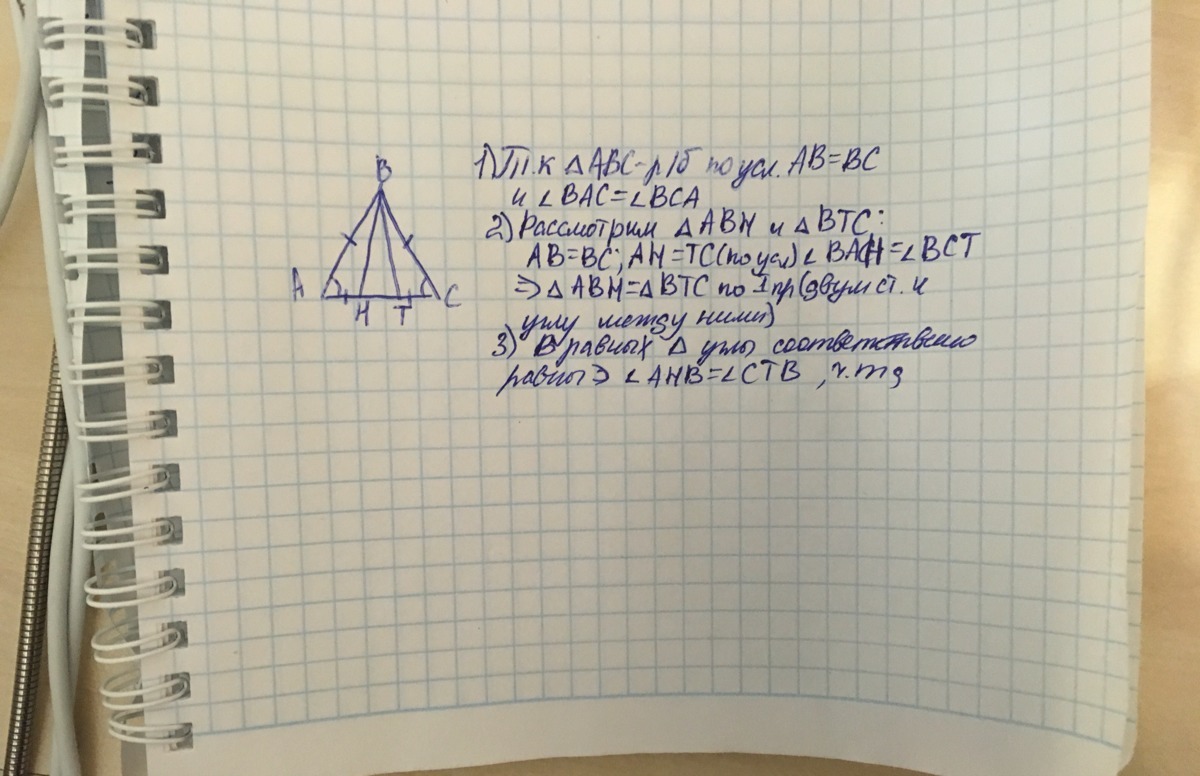 B
A
H
T
C
1) Т.к △ABC-р/б по усл. AB=BC
и ∠BAC=∠BCA
2) Рассмотрим △ABH и △BTC:
AB=BC; AH=TC(по усл) ∠BAH=∠BCT
⇒ △ABH=△BTC по 1 пр(двум ст. и
углу между ними)
3) В равных △ углы соответственно
равны ⇒ ∠AHB=∠CTB , ч.тд